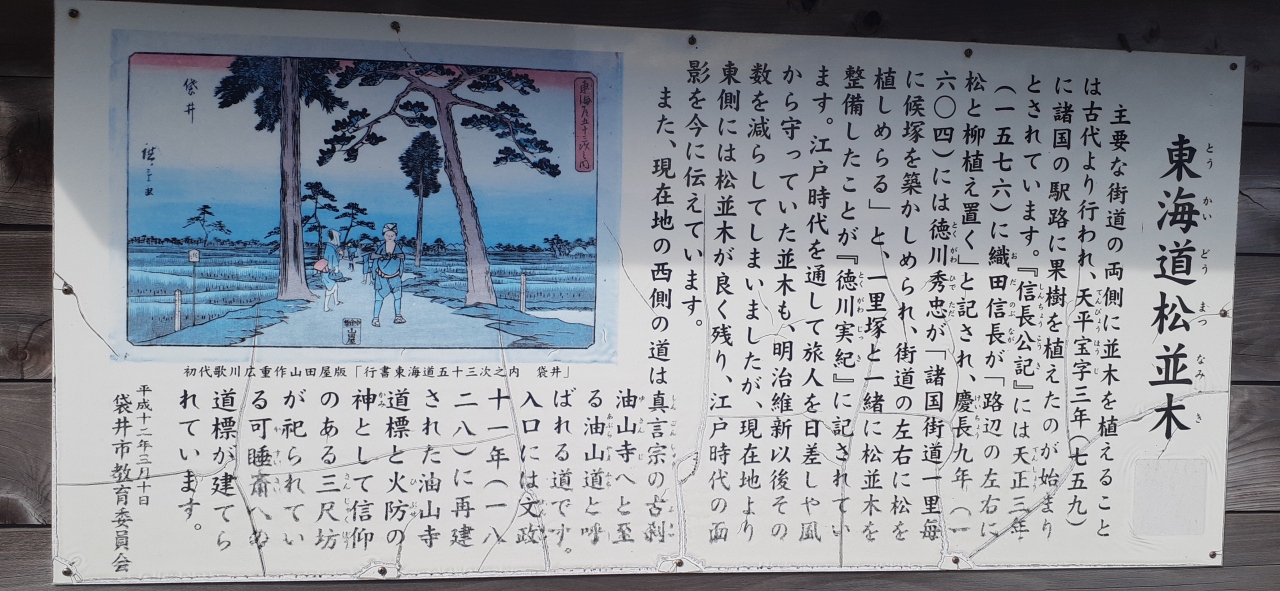 東海道松並木
とう かい どう まつ なみ き
主要な街道の両側に並木を植えること
は古代より行われ、天平宝字三年(七五九)
に諸国の駅路に果樹を植えたのが始まり
とされています。『信長公記』には天正三年
(一五七六)に織田信長が「路辺の左右に
松と柳植え置く」と記され、慶長九年(一
六〇四)には徳川秀忠が「諸国街道一里毎
に候塚を築かしめられ、街道の左右に松を
植しめらる」と、一里塚と一緒に松並木を
整備したことが『徳川実紀』に記されてい
ます。江戸時代を通して旅人を日差しや風
から守っていた並木も、明治維新以後その
数を減らしてしまいましたが、現在地より
東側には松並木が良く残り、江戸時代の面
影を今に伝えています。
また、現在地の西側の道は真言宗の古刹
油山寺へと至
る油山道と呼
ばれる道です。
入口には文政
十一年(一八
二八)に再建
された油山寺
道標と火防の
神として信仰
のある三尺坊
が祀られてい
る可睡斎への
道標が建てら
れています。
平成十二年三月十日
袋井市教育委員会
東海道五十三次之内
袋井
初代歌川広重作山田屋版「行書東海道五十三次之内 袋井」